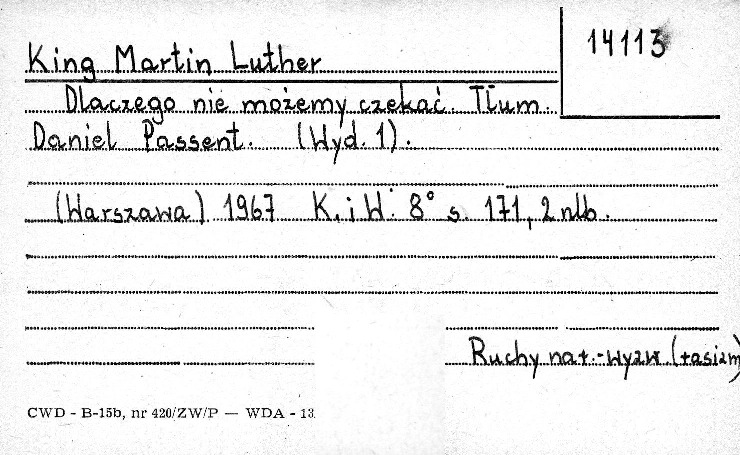 14113
King Martin Luther
Dlaczego nie możemy czekać. Tłum.
Daniel Passent. (Wyd. 1).
(Warszawa) 1967 K. i W. 8° s. 171, 2 nlb.
Ruchy nar.-wyzw (rasizm)
CWD - B-15b, nr 420/ZW/P — WDA - 13